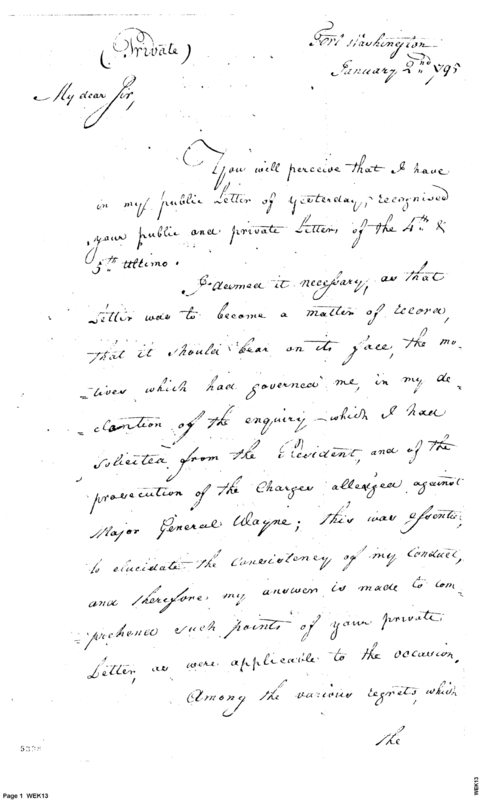 (Private)
Fort Washington
January 2nd 1795
My dear Sir,
You will perceive that I have
in my public Letter of yesterday, recognised
your public and private Letters of the 4th &
5th Ultimo.
I deemed it necessary, as that
Letter was to become a matter of record,
that it should bear on its face, the mo-
=tives which had governed me, in my de-
=clention of the enquiry which I had
solicited from the President, and of the
prosecution of the Charges alledged against
Major General Wayne; this was essential,
to elucidate the Consistency of my Conduct,
and therefore my answer is made to com-
=prehend such points of your private
Letter, as were applicable to the occasion.
Among the various regrets, which
the
5338
Page 1 WEK13
WEK13